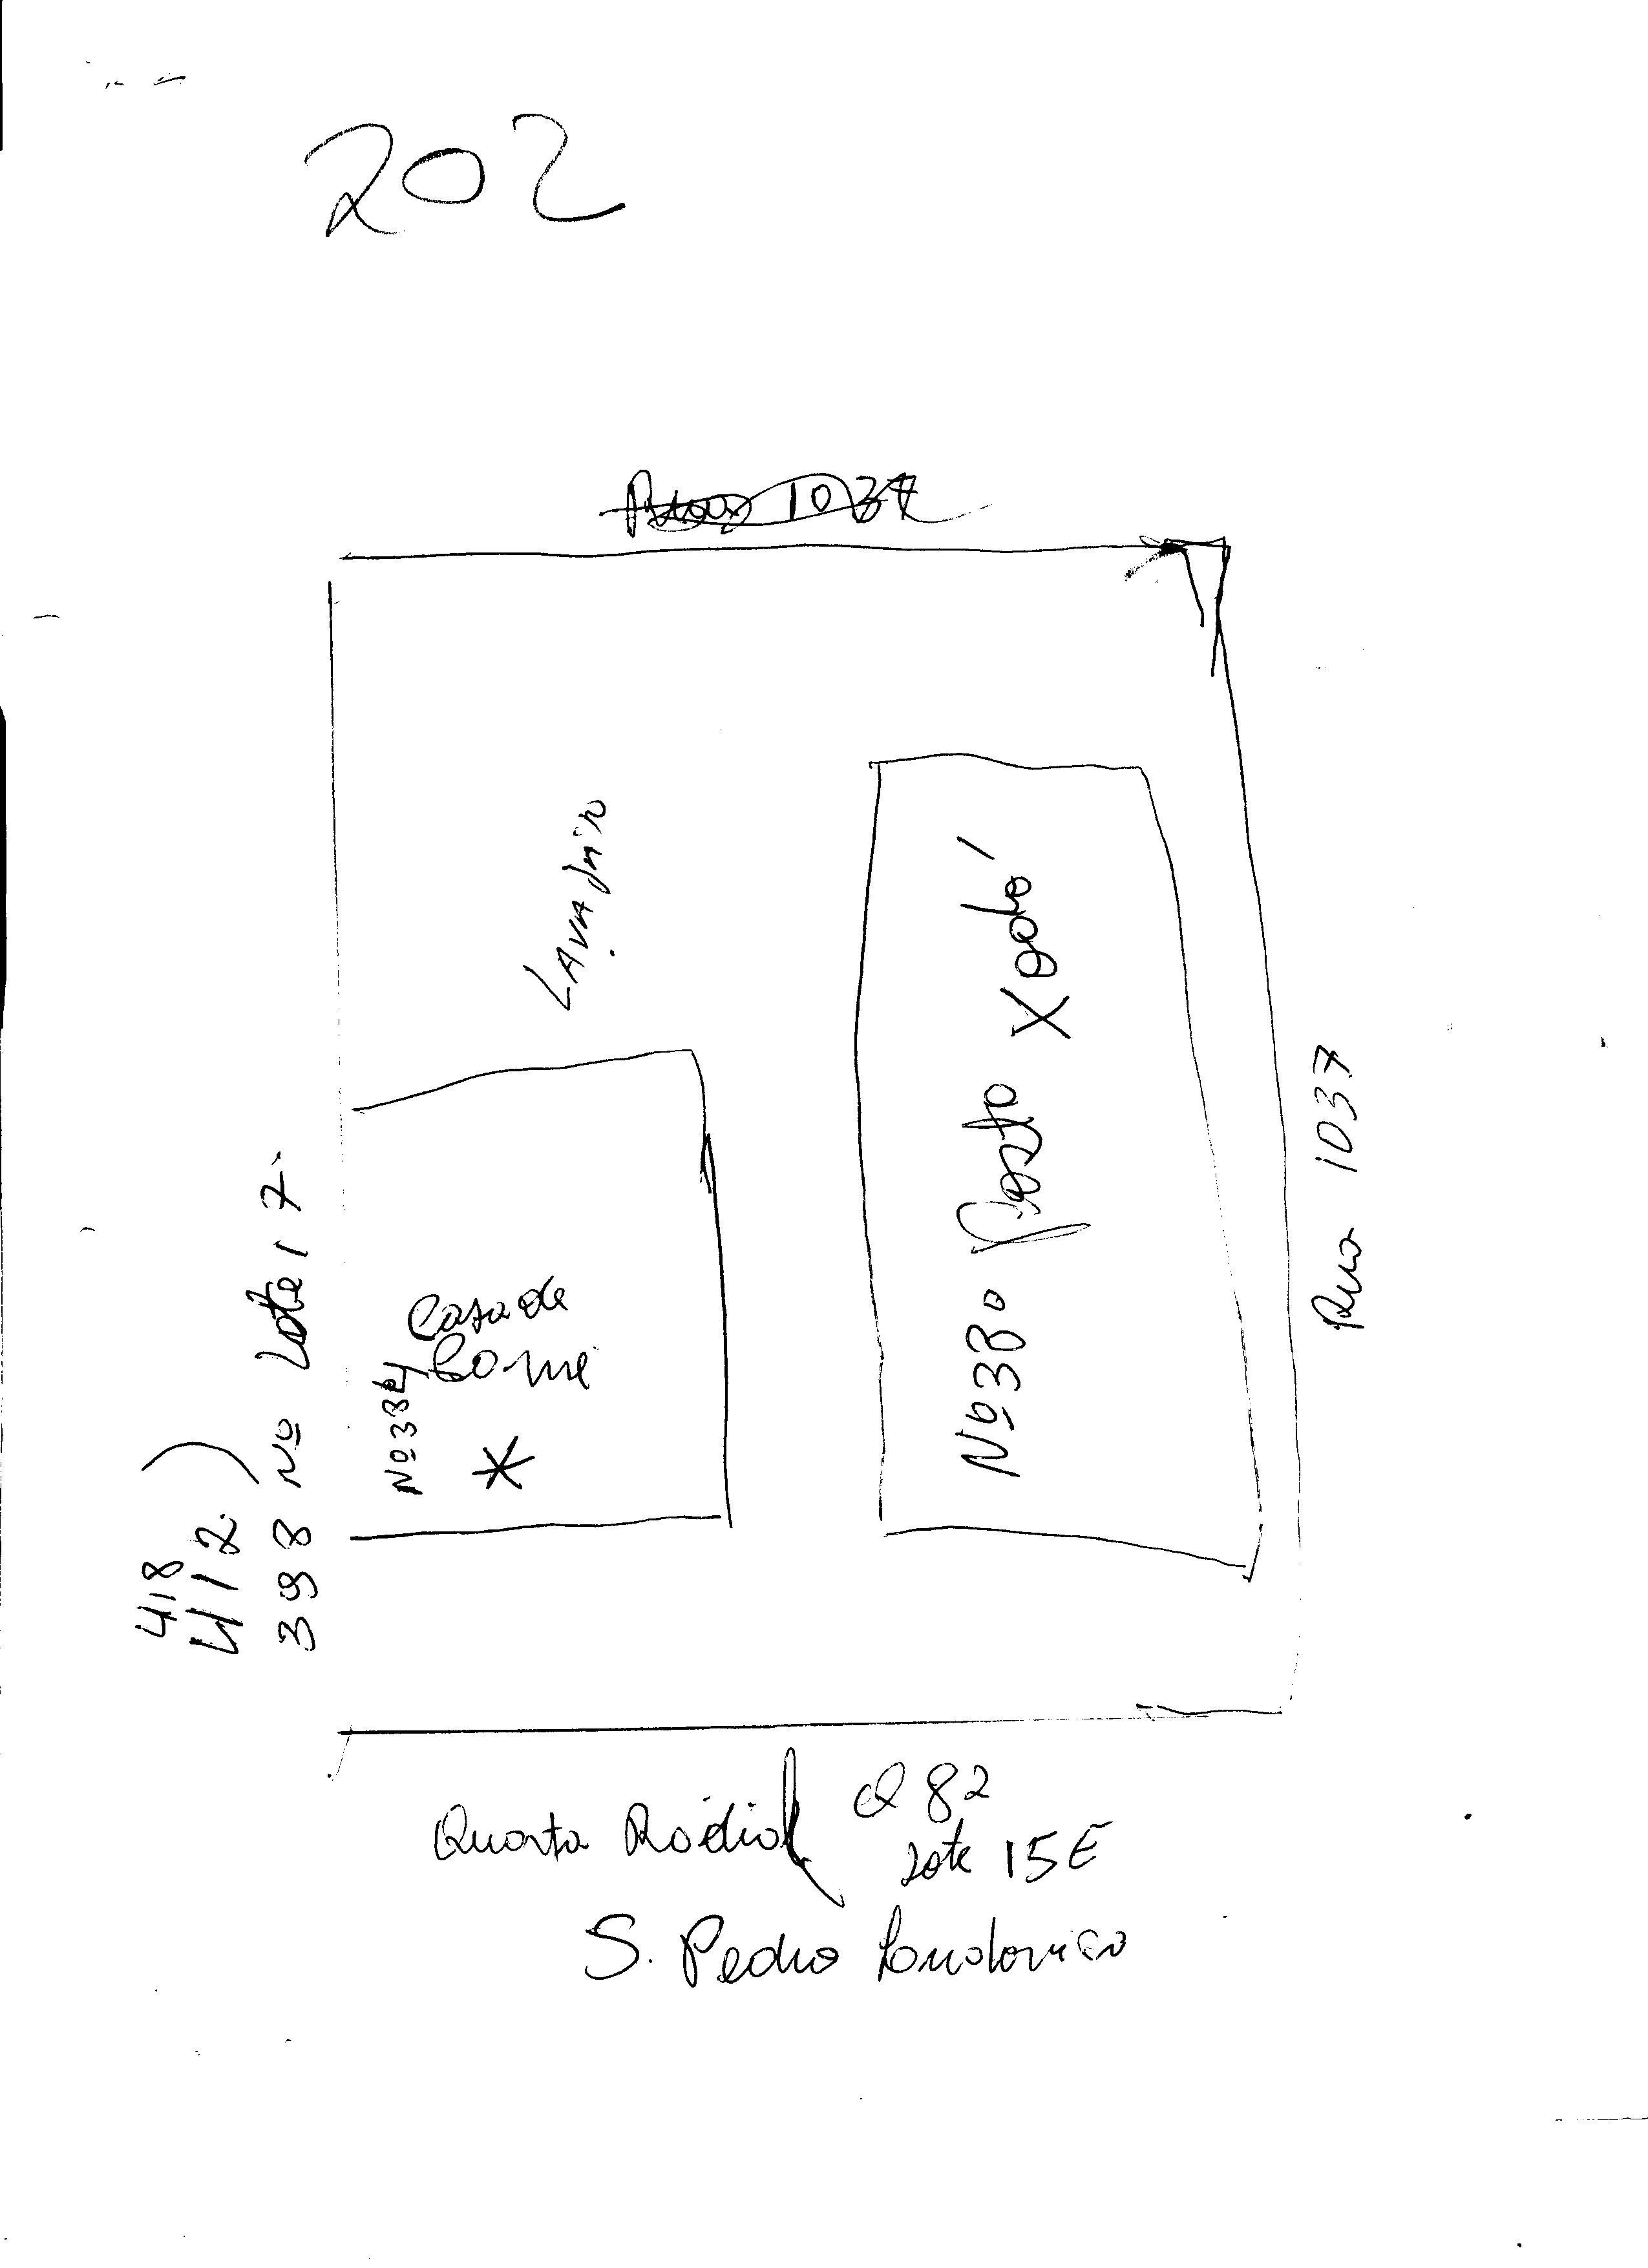 202
Rua 1037
Lavajato
Nº 380 Posto Xodó
Rua 1037
Casa de
Carne
Nº 384
*
418
412)
398 Nº Lote 17
Quarta Radial Q 82
Lote 15E
S. Pedro Ludovico